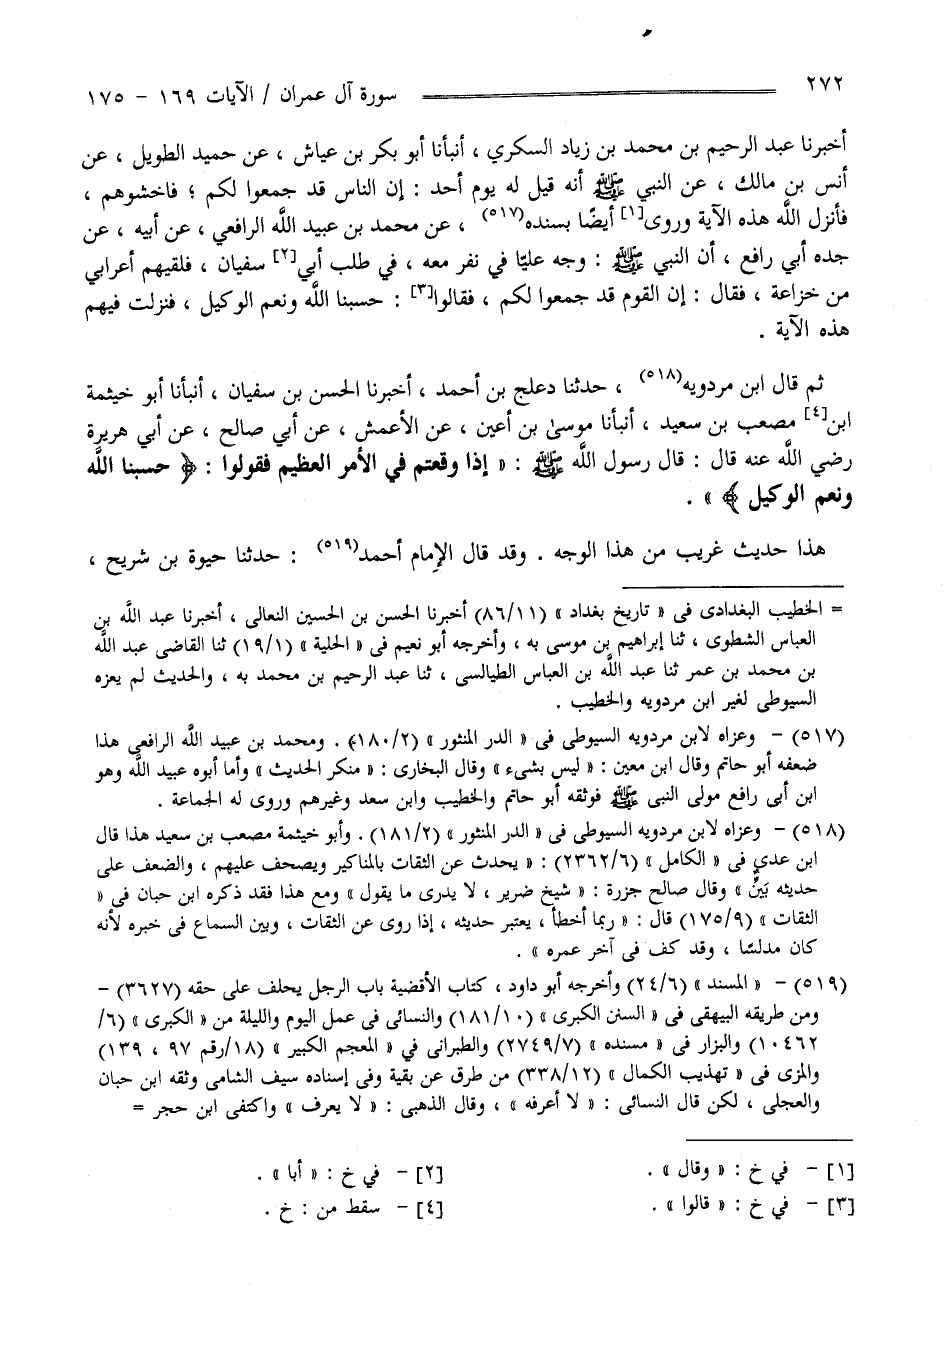 ٢٧٢ سورة آل عمران / الآيات ١٦٩ - ١٧٥
أخبرنا عبد الرحيم بن محمد بن زياد السكري ، أنبأنا أبو بكر بن عياش ، عن حميد الطويل ، عن
أنس بن مالك ، عن النبي ﷺ أنه قيل له يوم أحد : إن الناس قد جمعوا لكم ؛ فاخشوهم ،
فأنزل اللَّه هذه الآية وروى[١] أيضًا بسنده(٥١٧) ، عن محمد بن عبيد اللَّه الرافعي ، عن أبيه ، عن
جده أبي رافع ، أن النبي ﷺ : وجه عليًا في نفر معه ، في طلب أبي[٢] سفيان ، فلقيهم أعرابي
من خزاعة ، فقال : إن القوم قد جمعوا لكم ، فقالوا[٣] : حسبنا اللَّه ونعم الوكيل ، فنزلت فيهم
هذه الآية .
ثم قال ابن مردويه(٥١٨) ، حدثنا دعلج بن أحمد ، أخبرنا الحسن بن سفيان ، أنبأنا أبو خيثمة
ابن[٤] مصعب بن سعيد ، أنبأنا موسىٰ بن أعين ، عن الأعمش ، عن أبي صالح ، عن أبي هريرة
رضي اللَّه عنه قال : قال رسول اللَّه ﷺ : « إذا وقعتم في الأمر العظيم فقولوا : ﴿ حسبنا اللَّه
ونعم الوكيل ﴾ » .
هذا حديث غريب من هذا الوجه . وقد قال الإمام أحمد(٥١٩) : حدثنا حيوة بن شريح ،
= الخطيب البغدادى فى « تاريخ بغداد » (٨٦/١١) أخبرنا الحسن بن الحسين النعالى ، أخبرنا عبد اللَّه بن
العباس الشطوى ، ثنا إبراهيم بن موسى به ، وأخرجه أبو نعيم فى « الحلية » (١٩/١) ثنا القاضى عبد اللَّه
بن محمد بن عمر ثنا عبد اللَّه بن العباس الطيالسى ، ثنا عبد الرحيم بن محمد به ، والحديث لم يعزه
السيوطى لغير ابن مردويه والخطيب .
(٥١٧) - وعزاه لابن مردويه السيوطى فى « الدر المنثور » (١٨٠/٢) . ومحمد بن عبيد اللَّه الرافعى هذا
ضعفه أبو حاتم وقال ابن معين : « ليس بشىء » وقال البخارى : « منكر الحديث » وأما أبوه عبيد اللَّه وهو
ابن أبى رافع مولى النبى ﷺ فوثقه أبو حاتم والخطيب وابن سعد وغيرهم وروى له الجماعة .
(٥١٨) - وعزاه لابن مردويه السيوطى فى « الدر المنثور » (١٨١/٢) . وأبو خيثمة مصعب بن سعيد هذا قال
ابن عدي فى « الكامل » (٢٣٦٢/٦) : « يحدث عن الثقات بالمناكير ويصحف عليهم ، والضعف على
حديثه بَيِّنٌ » وقال صالح جزرة : « شيخ ضرير ، لا يدرى ما يقول » ومع هذا فقد ذكره ابن حبان فى «
الثقات » (١٧٥/٩) قال : « ربما أخطأ ، يعتبر حديثه ، إذا روى عن الثقات ، وبين السماع فى خبره لأنه
كان مدلسًا ، وقد كف فى آخر عمره » .
(٥١٩) - « المسند » (٢٤/٦) وأخرجه أبو داود ، كتاب الأقضية باب الرجل يحلف على حقه (٣٦٢٧) -
ومن طريقه البيهقى فى « السنن الكبرى » (١٨١/١٠) والنسائى فى عمل اليوم والليلة من « الكبرى » (٦/
١٠٤٦٢) والبزار فى « مسنده » (٢٧٤٩/٧) والطبرانى في « المعجم الكبير » (١٨/رقم ٩٧ ، ١٣٩)
والمزى فى « تهذيب الكمال » (٣٣٨/١٢) من طرق عن بقية وفى إسناده سيف الشامى وثقه ابن حبان
والعجلى ، لكن قال النسائى : « لا أعرفه » ، وقال الذهبى : « لا يعرف » واكتفى ابن حجر =
[١] - في خ : « وقال » . [٢] - في خ : « أبا » .
[٣] - في خ : « قالوا » . [٤] - سقط من : خ .